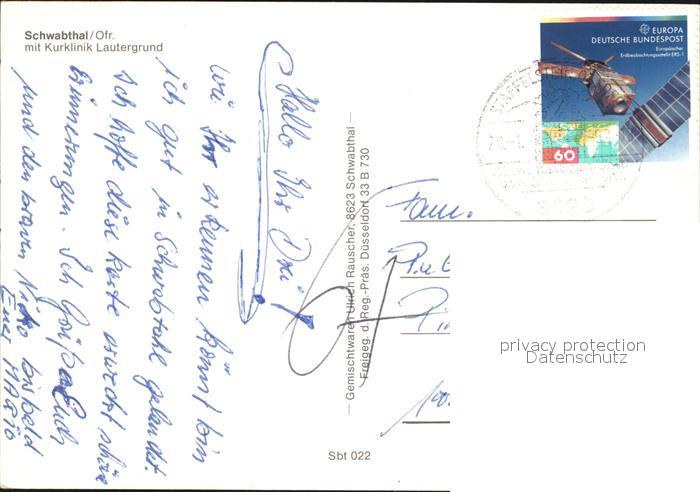 Schwabthal/Ofr.
mit Kurklinik Lautergrund
Hallo Ihr Drei!
Wie Ihr erkennen könnt bin
ich gut in Schwabtahl gelandet.
Ich hoffe diese Karte erweckt schöne
Erinnerungen. Ich Grüße Euch
und den braven Niko bisbald
Euer Mario
Gemischtwaren Ulrich Rauscher, 8623 Schwabthal
Freigeg. d. Reg.-Präs. Düsseldorf 33 B 730
Sbt 022
EUROPA
DEUTSCHE BUNDESPOST
Europäischer
Erdbeobachtungssatellit ERS-1
60
Fam.
privacy protection
Datenschutz